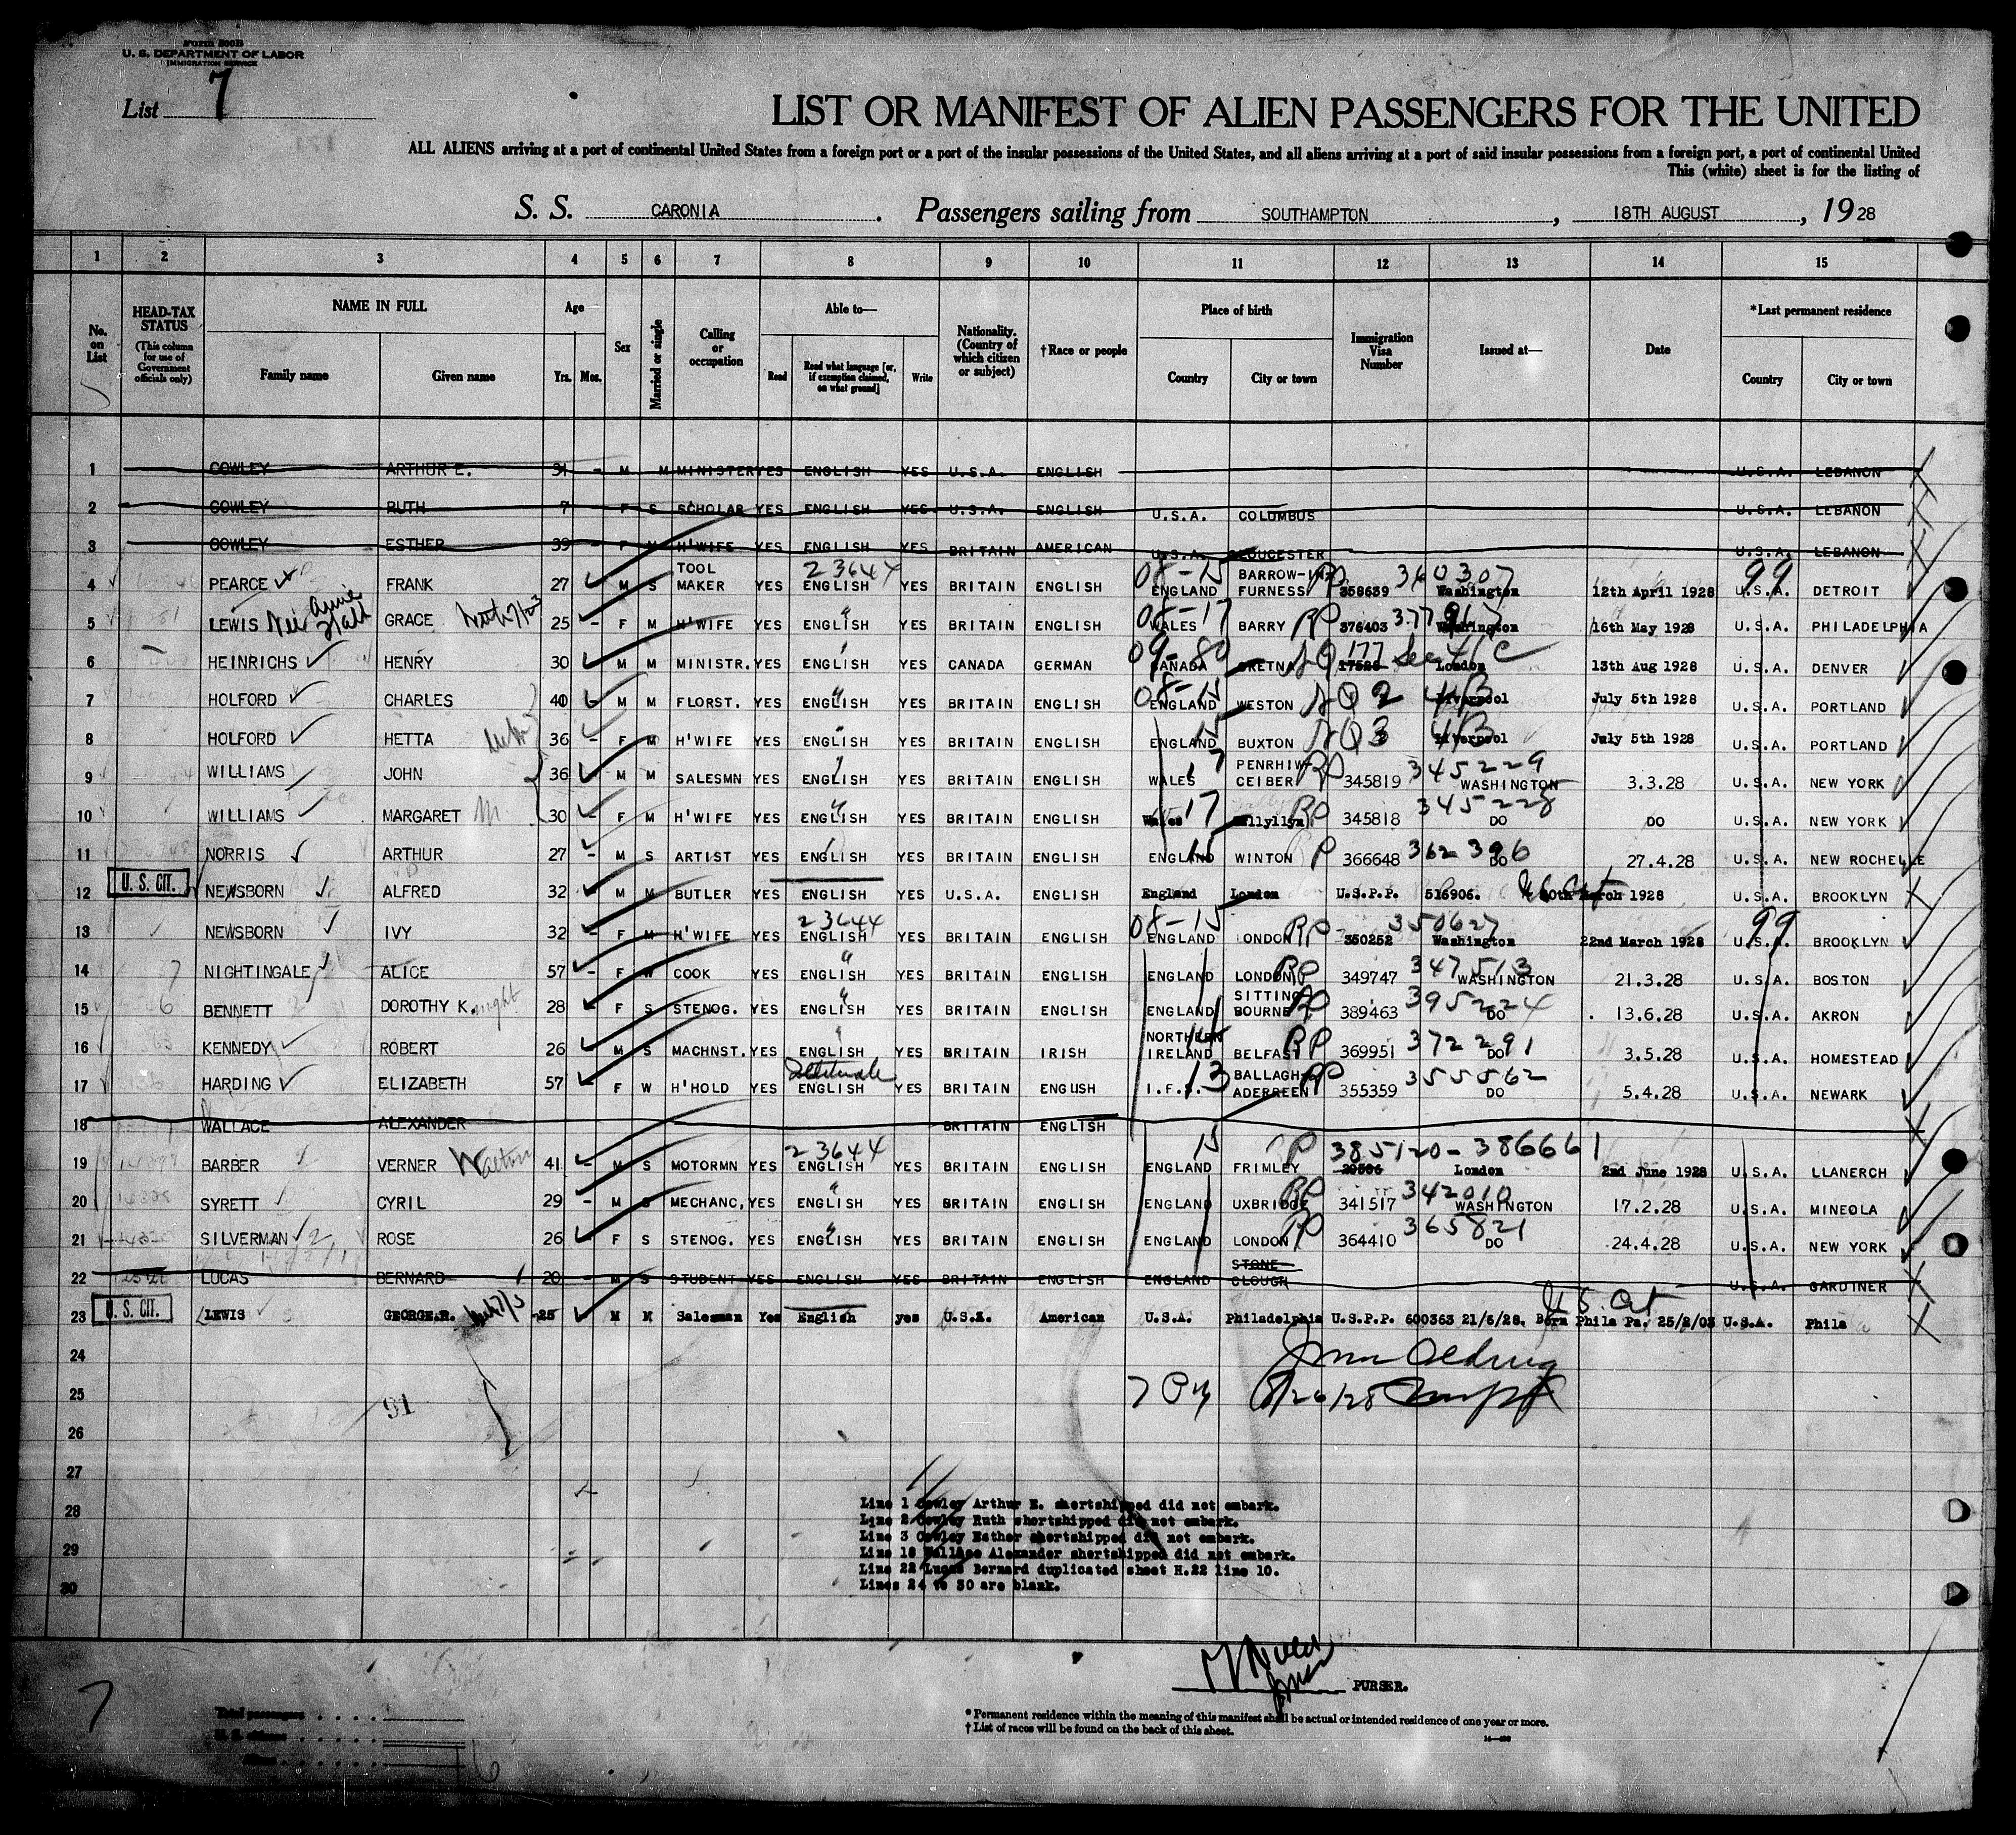 Form 500B
U. S. DEPARTMENT OF LABOR
IMMIGRATION SERVICE
List 7
LIST OR MANIFEST OF ALIEN PASSENGERS FOR THE UNITED
ALL ALIENS arriving at a port of continental United States from a foreign port or a port of the insular possessions of the United States, and all aliens arriving at a port of said insular possessions from a foreign port, a port of continental United
This (white) sheet is for the listing of
S. S. CARONIA. Passengers sailing from SOUTHAMPTON, 18TH AUGUST, 1928
1 2 3 4 5 6 7 8 9 10 11 12 13 14 15
No. on List HEAD-TAX STATUS (This column for use of Government officials only) NAME IN FULL Family name Given name Age Yrs. Mos. Sex Married or single Calling or occupation Able to— Read Read what language [or, if exemption claimed, on what ground] Write Nationality. (Country of which citizen or subject) †Race or people Place of birth Country City or town Immigration Visa Number Issued at— Date *Last permanent residence Country City or town
1 COWLEY ARTHUR E. 31 - M M MINISTER YES ENGLISH YES U.S.A. ENGLISH U.S.A. LEBANON
2 COWLEY RUTH 7 - F S SCHOLAR YES ENGLISH YES U.S.A. ENGLISH U.S.A. COLUMBUS U.S.A. LEBANON
3 COWLEY ESTHER 39 - F M H'WIFE YES ENGLISH YES BRITAIN AMERICAN U.S.A. GLOUCESTER U.S.A. LEBANON
4 PEARCE FRANK 27 M S TOOL MAKER YES 23644 ENGLISH YES BRITAIN ENGLISH 08-15 ENGLAND BARROW-IN-FURNESS RP 358639 360307 Washington 12th April 1928 99 U.S.A. DETROIT
5 LEWIS Nei Annie Hall GRACE 25 - F M H'WIFE YES ENGLISH YES BRITAIN ENGLISH 08-17 WALES BARRY RP 376403 Washington 16th May 1928 U.S.A. PHILADELPHIA
6 HEINRICHS HENRY 30 M M MINISTR. YES ENGLISH YES CANADA GERMAN 09-80 CANADA GRETNA 177 17528 Sec 4/C London 13th Aug 1928 U.S.A. DENVER
7 HOLFORD CHARLES 40 M M FLORST. YES ENGLISH YES BRITAIN ENGLISH 08-15 ENGLAND WESTON NQ 2 4/B Liverpool July 5th 1928 U.S.A. PORTLAND
8 HOLFORD HETTA 36 - F M H'WIFE YES ENGLISH YES BRITAIN ENGLISH ENGLAND 15 BUXTON NQ 3 4/B Liverpool July 5th 1928 U.S.A. PORTLAND
9 WILLIAMS JOHN 36 M M SALESMN YES ENGLISH YES BRITAIN ENGLISH WALES 17 PENRHIW-CEIBER RP 345819 345229 WASHINGTON 3.3.28 U.S.A. NEW YORK
10 WILLIAMS MARGARET M 30 - F M H'WIFE YES ENGLISH YES BRITAIN ENGLISH Wales 17 RP 345818 345228 DO DO U.S.A. NEW YORK
11 NORRIS ARTHUR 27 - M S ARTIST YES ENGLISH YES BRITAIN ENGLISH ENGLAND 15 WINTON P 366648 362396 DO 27.4.28 U.S.A. NEW ROCHELLE
12 U. S. CIT. NEWSBORN ALFRED 32 M M BUTLER YES ENGLISH YES U.S.A. ENGLISH England London U.S.P.P. 516906. March 1928 U.S.A. BROOKLYN
13 NEWSBORN IVY 32 - F M H'WIFE YES 23644 ENGLISH YES BRITAIN ENGLISH 08-15 ENGLAND LONDON RP 350252 350627 Washington 22nd March 1928 99 U.S.A. BROOKLYN
14 NIGHTINGALE ALICE 57 - F W COOK YES ENGLISH YES BRITAIN ENGLISH ENGLAND LONDON RP 349747 347513 WASHINGTON 21.3.28 U.S.A. BOSTON
15 BENNETT DOROTHY K.night 28 F S STENOG. YES ENGLISH YES BRITAIN ENGLISH ENGLAND SITTINGBOURNE RP 389463 395224 DO 13.6.28 U.S.A. AKRON
16 KENNEDY ROBERT 26 M S MACHNST. YES ENGLISH YES BRITAIN IRISH NORTHERN IRELAND BELFAST RP 369951 372291 DO 3.5.28 U.S.A. HOMESTEAD
17 HARDING ELIZABETH 57 F W H'HOLD YES ENGLISH YES BRITAIN ENGLISH I.F.S. 13 BALLAGH-ADERREEN RP 355359 355562 DO 5.4.28 U.S.A. NEWARK
18 WALLACE ALEXANDER BRITAIN ENGLISH
19 BARBER VERNER Walton 41 - M S MOTORMN YES 23644 ENGLISH YES BRITAIN ENGLISH ENGLAND 15 FRIMLEY RP 385120-386661 London 2nd June 1928 U.S.A. LLANERCH
20 SYRETT CYRIL 29 - M S MECHANC. YES ENGLISH YES BRITAIN ENGLISH ENGLAND UXBRIDGE RP 341517 342010 WASHINGTON 17.2.28 U.S.A. MINEOLA
21 SILVERMAN ROSE 26 - F S STENOG. YES ENGLISH YES BRITAIN ENGLISH ENGLAND LONDON RP 364410 365821 DO 24.4.28 U.S.A. NEW YORK
22 LUCAS BERNARD 20 - M S STUDENT YES ENGLISH YES BRITAIN ENGLISH ENGLAND STONE CLOUGH U.S.A. GARDINER
23 U. S. CIT. LEWIS GEORGE.R. 25 M M Salesman Yes English yes U.S.A. American U.S.A. Philadelphia U.S.P.P. 600363 21/6/28. Born Phila Pa. 25/2/03 U.S. Cit U.S.A. Phila
24
25 91 8/26/28
26
27
28
29
30
Line 1 Cowley Arthur E. shortshipped did not embark.
Line 2 Cowley Ruth shortshipped did not embark.
Line 3 Cowley Esther shortshipped did not embark.
Line 18 Wallace Alexander shortshipped did not embark.
Line 22 Lucas Bernard duplicated sheet H.22 line 10.
Lines 24 to 30 are blank.
PURSER.
7
Total passengers
U. S. citizens
Aliens
16
* Permanent residence within the meaning of this manifest shall be actual or intended residence of one year or more.
† List of races will be found on the back of this sheet.